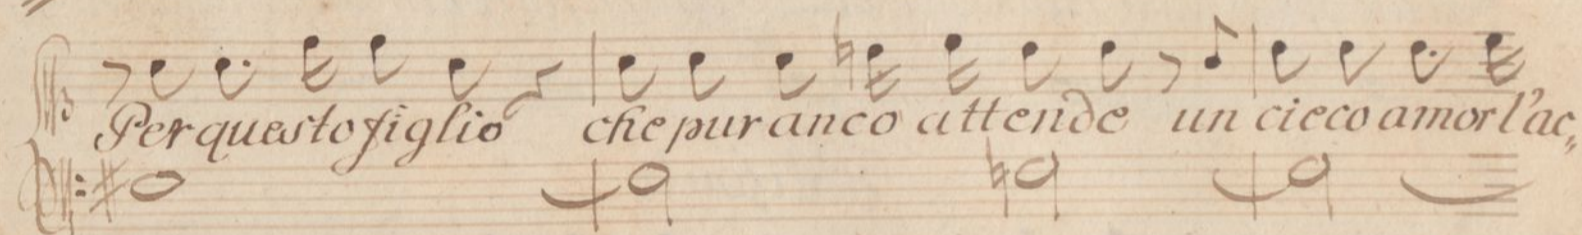 Per questo figlio che pur anco attende un cieco amor l'ac,,